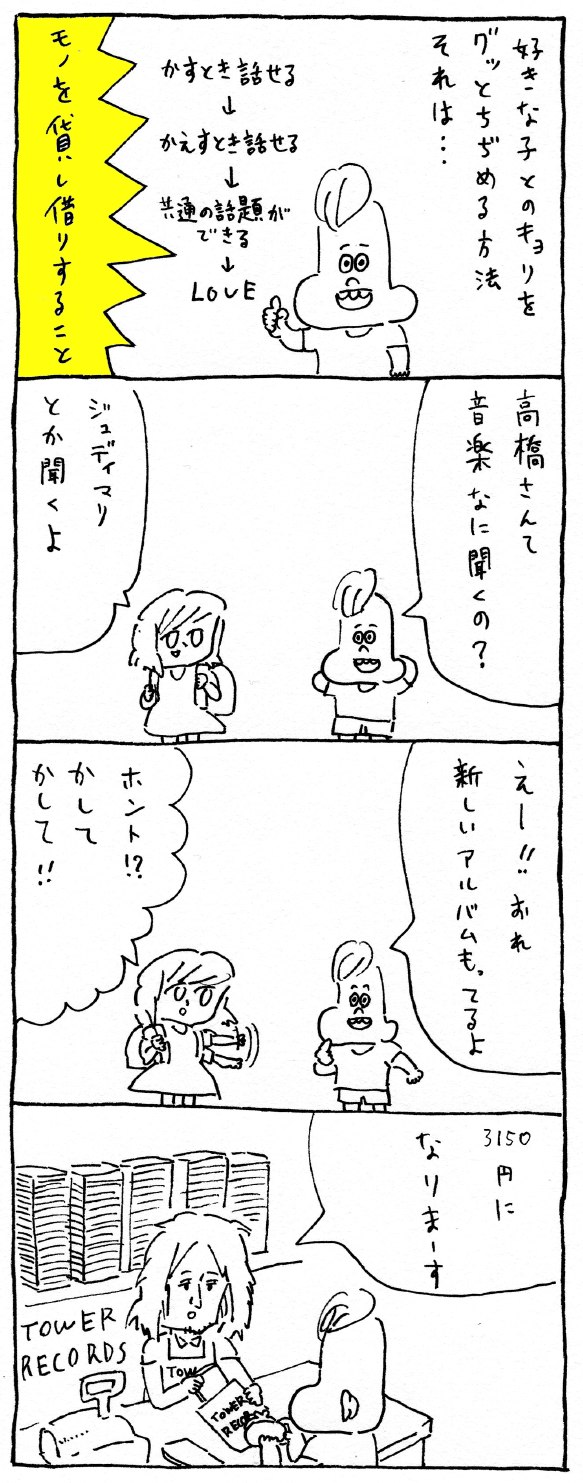 好きな子とのキョリを
グッとちぢめる方法
それは・・・
かすとき話せる
↓
かえすとき話せる
↓
共通の話題が
できる
↓
LOVE
モノを貸し借りすること
高橋さんて
音楽なに聞くの？
ジュディマリ
とか聞くよ
えー!!おれ
新しいアルバムもってるよ
ホント!?
かして
かして!!
3150
円に
なりまーす
TOWER
RECORDS
TOW
TOWER
RECOR